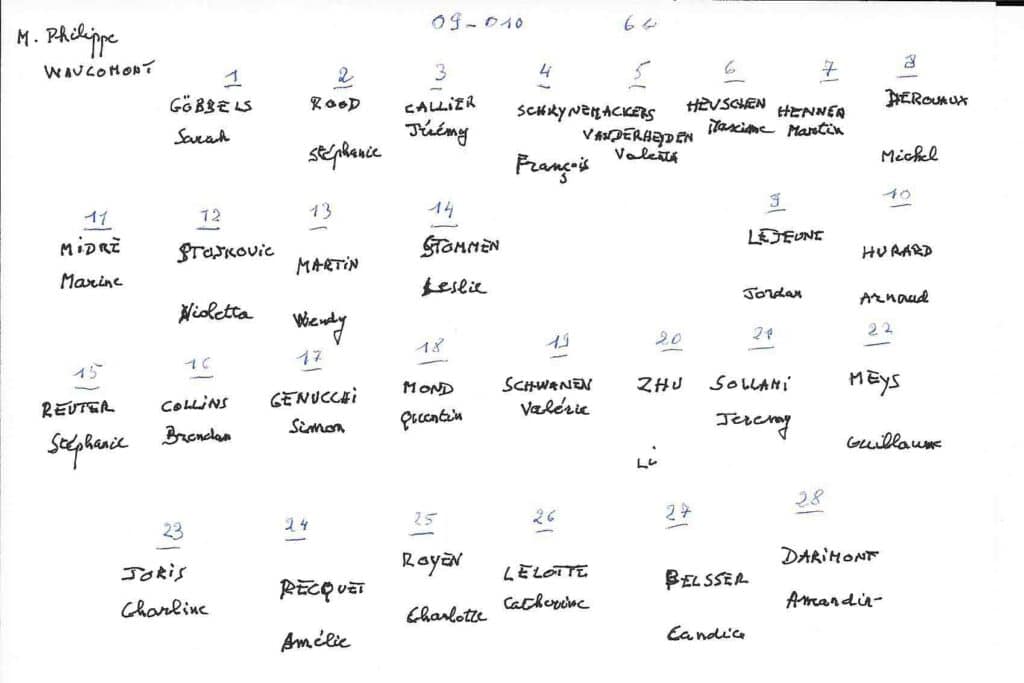 M. Philippe 09-010 6G
WAUCOMONT
1 2 3 4 5 6 7 8
GÖBBELS ROOD CALLIER SCHRYNEMACKERS HEUSCHEN HENNEN DEROUAUX
Sarah Stéphanie Jérémy François VANDERHEYDEN Maxime Martin Michel
Valentin
11 12 13 14 9 10
MIDRÉ STOJKOVIC MARTIN STOMMEN LEJEUNE HURARD
Marine Violetta Wendy Leslie Jordan Arnaud
15 16 17 18 19 20 21 22
REUTER COLLINS GENUCCHI MOND SCHWANEN ZHU SOLLAMI MEYS
Stéphanie Brendan Simon Quentin Valérie Li Jeremy Guillaume
23 24 25 26 27 28
JORIS RECQUET ROYEN LELOTTE BELSSER DARIMONT
Charline Amélie Charlotte Catherine Candice Amandin-